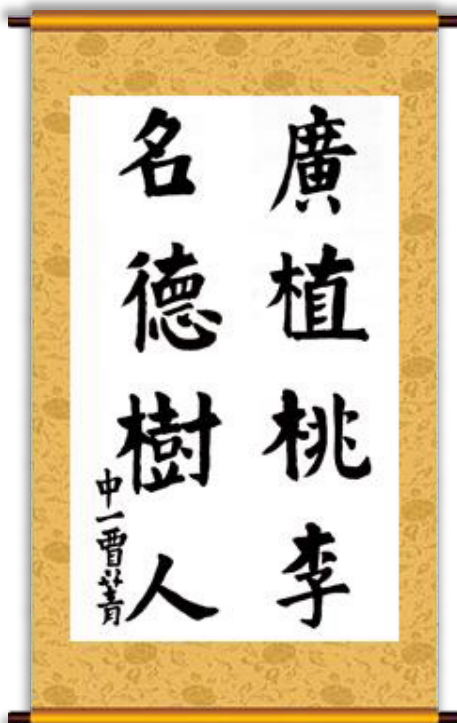 廣植桃李
名德樹人
中一賈菁